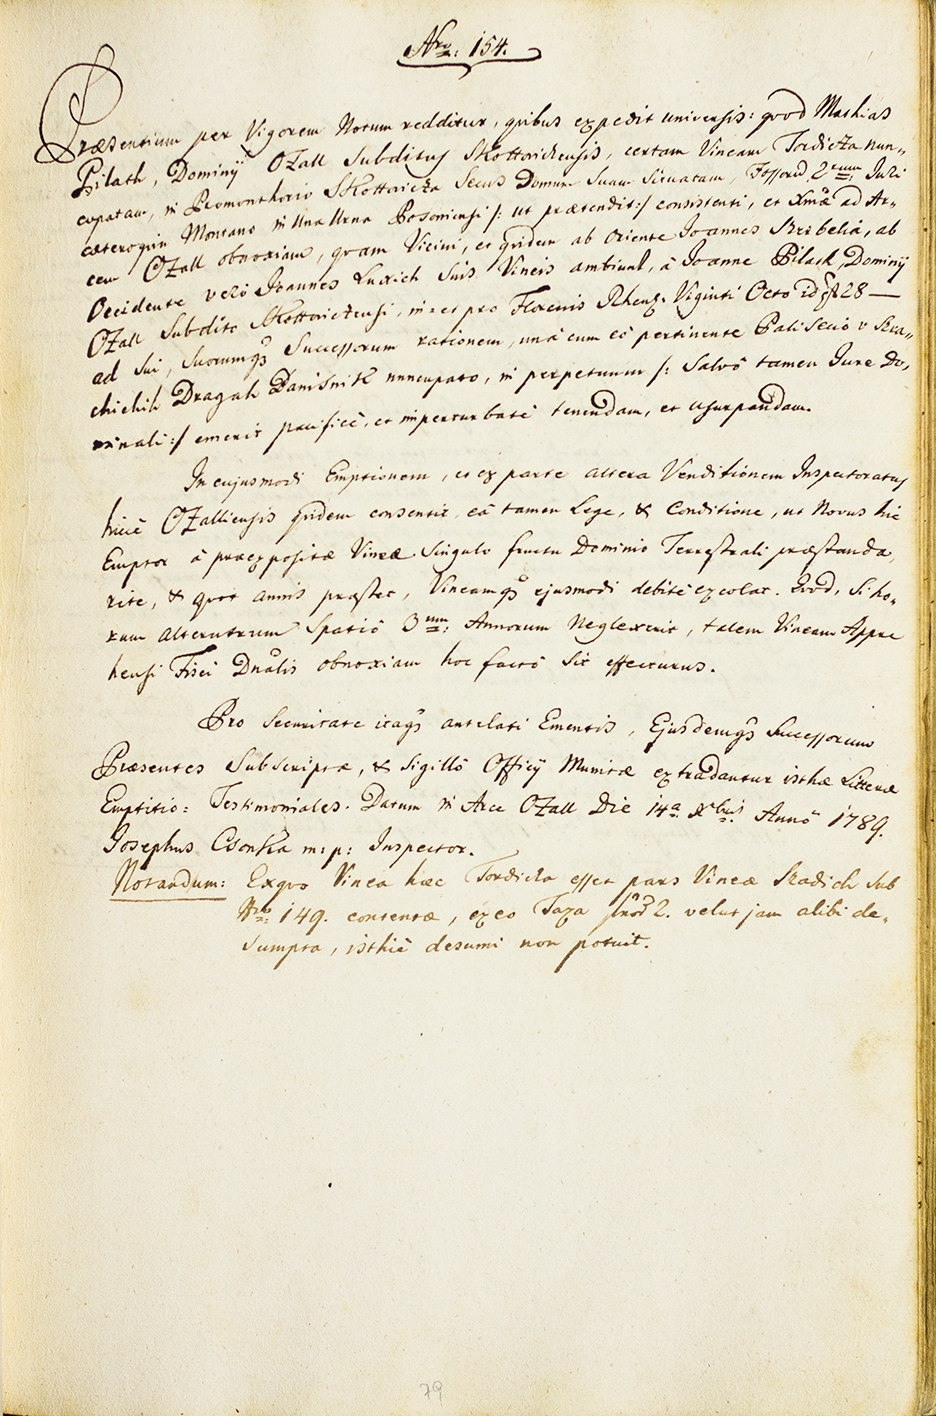 Nro: 154.
Præsentium per Vigorem Notum redditur, quibus expedit universis: quod Mathias
Pilath, Dominÿ Ozall Subditus Skottorichensis, certam Vineam Tordicza nun-
cupatam, in Promonthorio Skottoricza Secus Domum Suam Situatam, Fossorū 2rum, Juri
cæteroquin Montano in Una Urna Posoniensi /: ut prætendit :/ consistenti, et Xmæ ad Ar-
cem Ozall obnoxiam, quam Vicini, et quidem ab Oriente Joannes Bribelia, ab
Occidente verò Joannes Luxich Suis Vineis ambiunt, à Joanne Pilath, Dominÿ
Ozall Subdito Skottorichensi, in et pro Florenis Rheng. Viginti Octo id est 28 —
ad Sui, Suorumqs Successorum rationem, unà cum eò pertinente
chichih Dragah Danisnik nuncupato, in perpetuum /: Salvô tamen Jure Do-
minali :/ emerit pacificè, et imperturbatè tenendam, et usurpandam.
In ejusmodi Emptionem, et ex parte altera Venditionem Inspectoratus
hicce Ozalliensis quidem consentit, eâ tamen Lege, & Conditione, ut Novus hic
Emptor à præexpositæ Vineæ Singulo fructu Dominio Terrestrali præstanda,
rite, & quot annis præstet, Vineamqs ejusmodi debitè excolat. Quod, Si ho-
rum alterutrum Spatiô 3um: Annorum Neglexerit, talem Vineam Appre
hensi Fisci Dnalis obnoxiam hoc factô Sit effecturus.
Pro Securitate itaqs antelati Ementis, Ejusdemqs Successorum
Præsentes Subscriptæ, & Sigillô Officÿ Munitæ extradantur isthæ Litteræ
Emptitio= Testimoniales. Datum in Arce Ozall Die 14a Xbris Annô 1789.
Josephus Csonka m: p: Inspector.
Notandum: Exquo Vinea hæc Tordicza esset pars Vineæ Kradich Sub
Nro: 149. contentæ, ex eo Taxa velut jam alibi de-
Sumpta, isthic desumi non potuit.
79